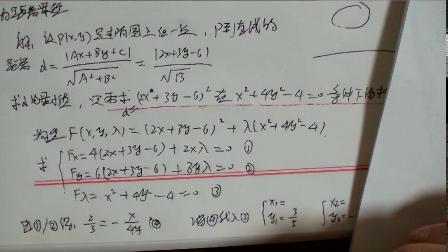 解: 设P(x,y)是椭圆上任一点, P到直线的
距离 d = |Ax+By+C| / √(A²+B²) = |2x+3y-6| / √13
求d的最小值, 只需求 (2x+3y-6)² 在 x²+4y²-4=0 条件下
F(x,y,λ) = (2x+3y-6)² + λ(x²+4y²-4)
求 { Fx = 4(2x+3y-6) + 2xλ = 0 ①
Fy = 6(2x+3y-6) + 8yλ = 0 ②
Fλ = x²+4y²-4 = 0 ③
①/②得, 2/3 = x/4y ④ ④代入③ { x₁= y₁= 3/5 { x₂= y₂=